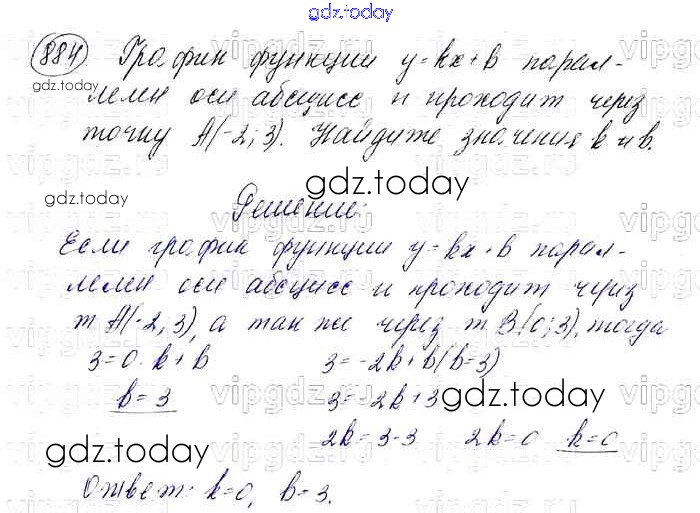 gdz.today
884 График функции y=kx+b парал-
gdz.today
лелен оси абсцисс и проходит через
точку A(-2; 3). Найдите значения k и b.
gdz.today
gdz.today
Решение:
Если график функции y=kx+b парал-
лелен оси абсцисс и проходит через
т A(-2, 3), а так же через т B(0; 3), тогда
3=0·k+b 3=-2k+b(b=3)
b=3 3=-2k+3 gdz.today
2k=3-3 2k=0 k=0
gdz.today
Ответ: k=0, b=3.
vipgdz.ru